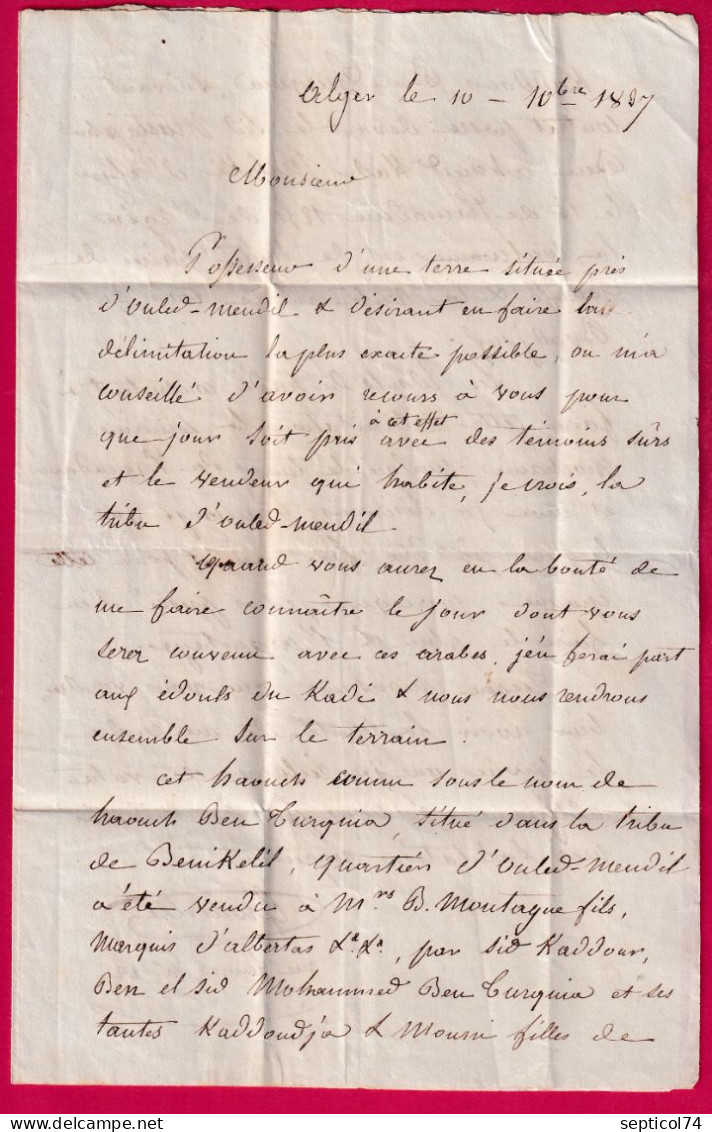 Alger le 10 - 10bre 1837
Monsieur
Possesseur d'une terre située près
d'ouled-mendil & désirant en faire la
délimitation la plus exacte possible, on m'a
conseillé d'avoir recours à vous pour
à cet effet
que jour soit pris avec des témoins sûrs
et le vendeur qui habite, je crois, la
tribu d'ouled-mendil.
Quand vous aurez eu la bonté de
me faire connaître le jour dont vous
serez convenu avec ces arabes, j'en ferai part
aux édouls du Kadi & nous nous rendrons
ensemble sur le terrain.
Cet haouch connu sous le nom de
haouch Ben Turquia, situé dans la tribu
de Benikelil, quartier d'ouled-mendil
a été vendu à Mrs B. Montague fils,
Marquis d'albertas &a. &a., par sid Kaddour,
Ben el sid Mohammed Ben Turquia et ses
tantes Kaddoudja & Mouni filles de
septicol74